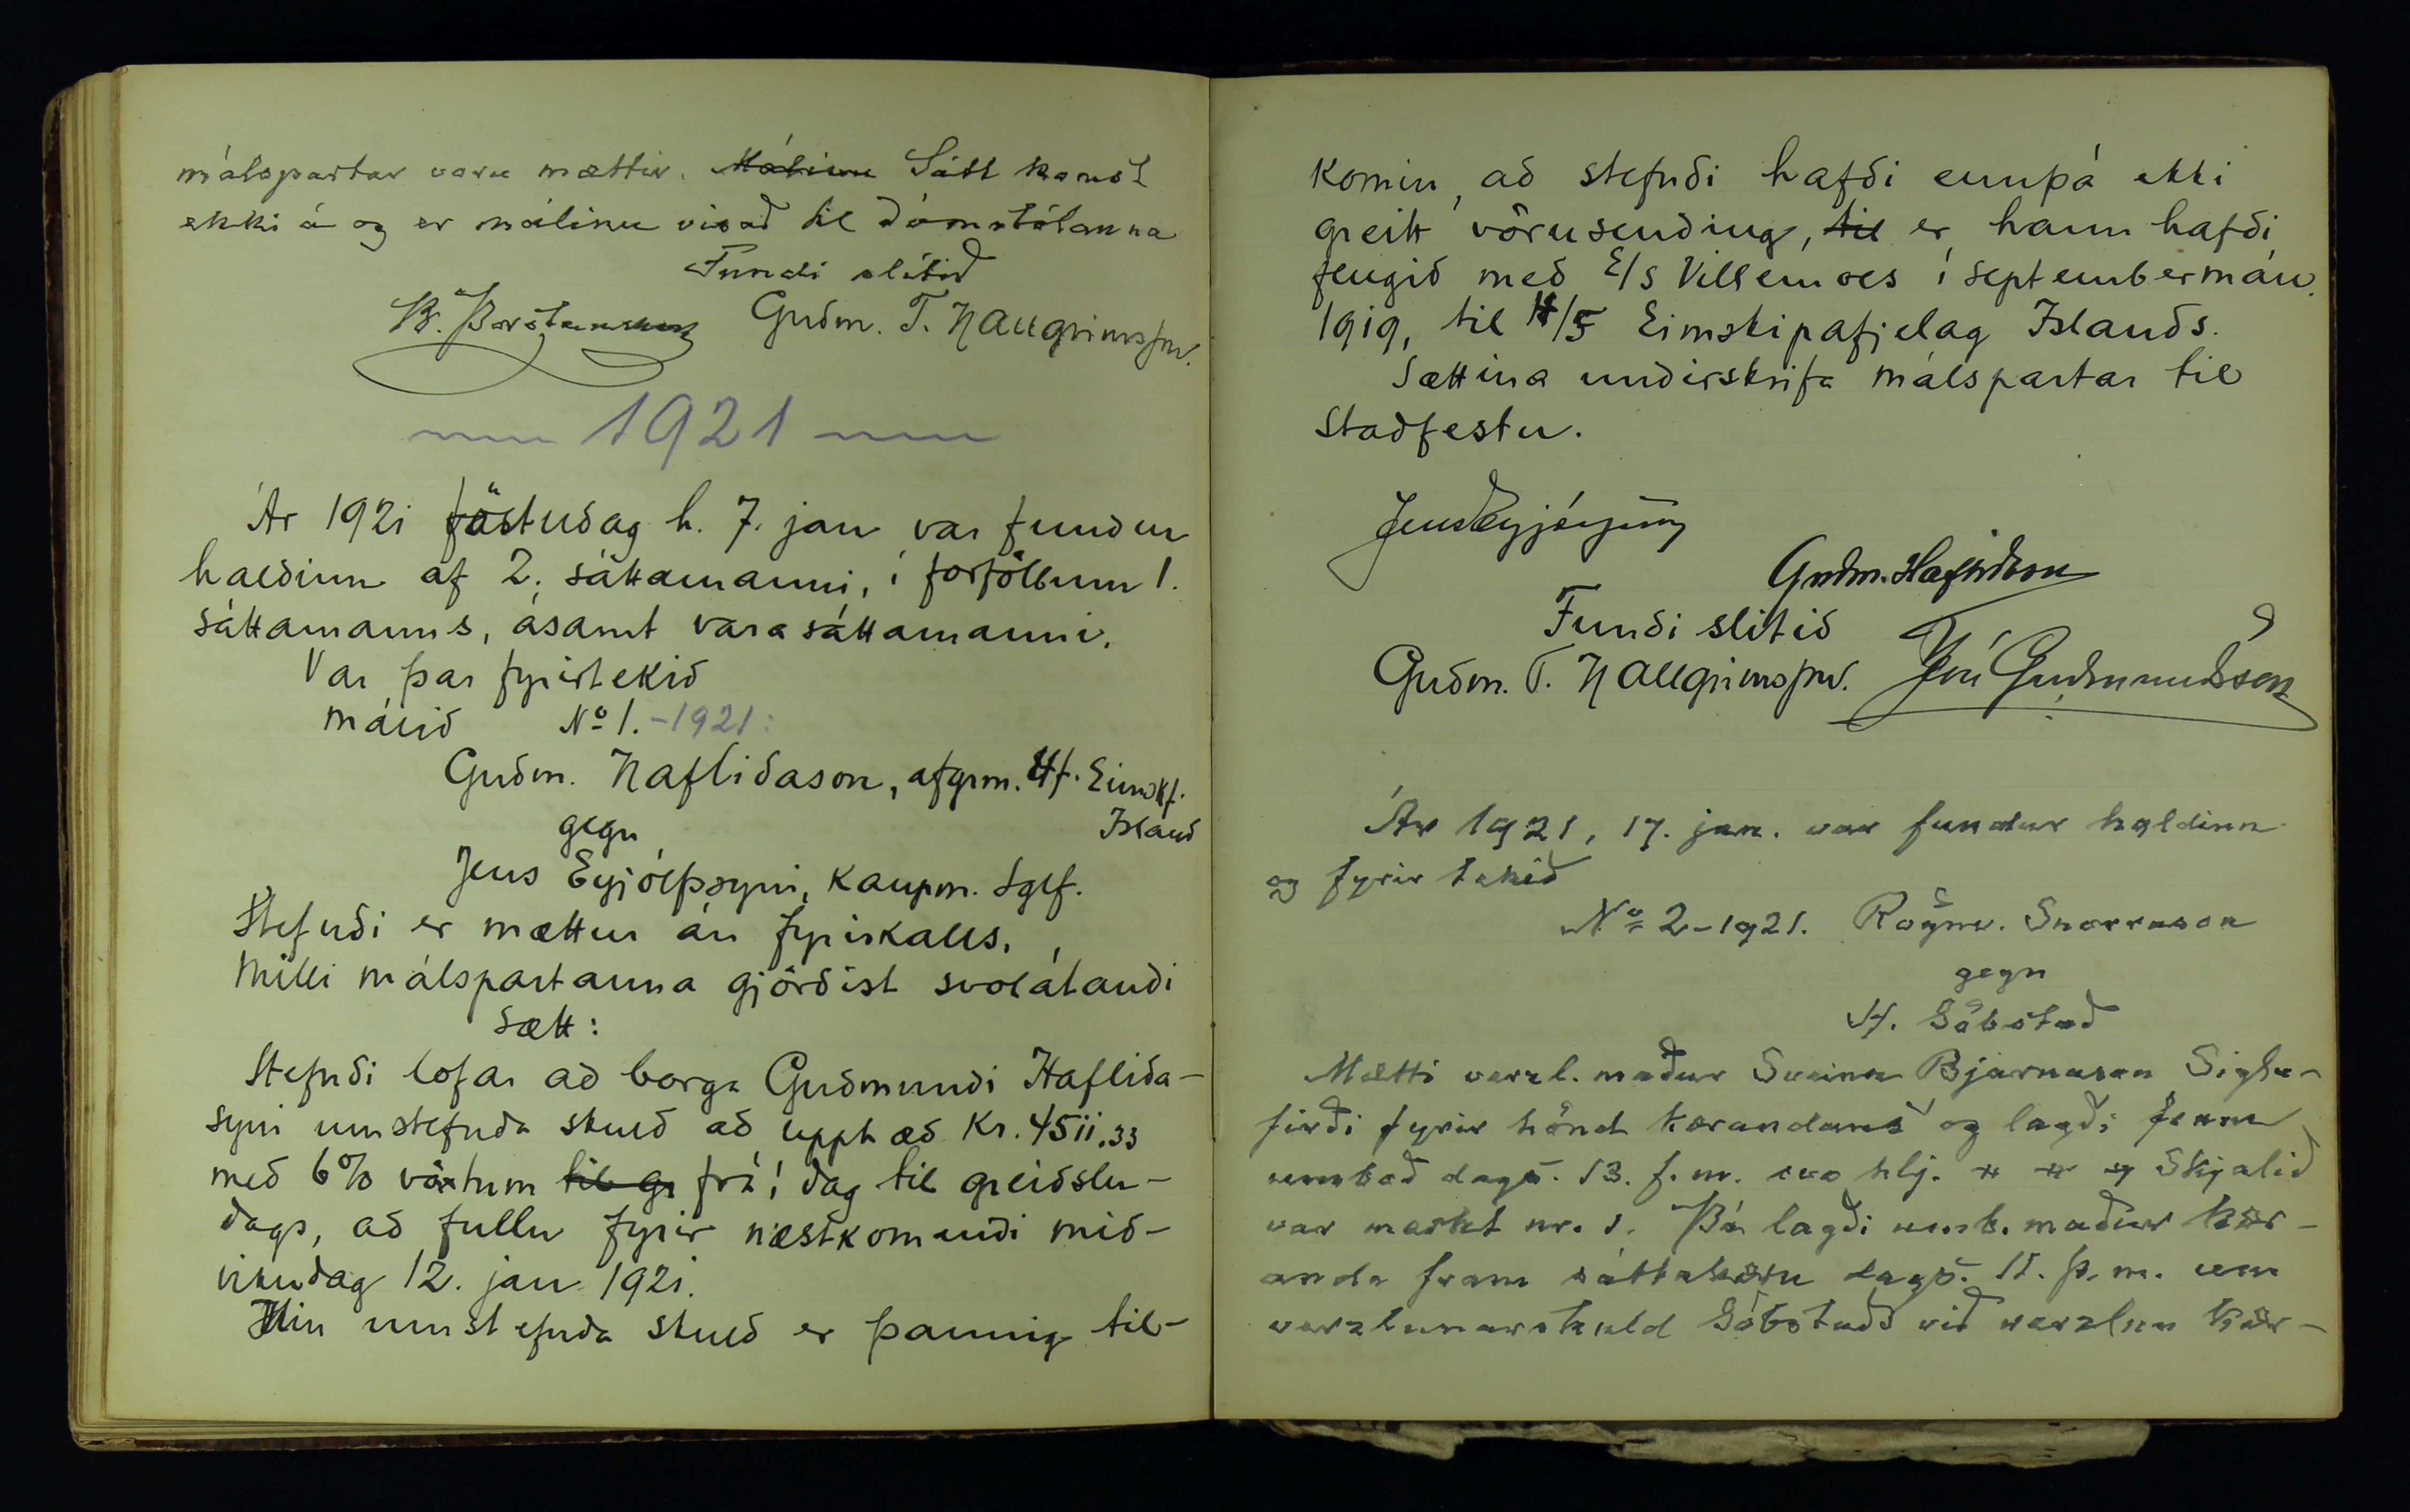 málspartar voru mættir. Málinu Sátt komst
ekki á og er málinu vísað til dómstólanna
Fundi slitið
B. Þorsteinsson Guðm. T. Hallgrímsson.
1921
Ár 1921 föstudag h. 7. jan var fundur
haldinn af 2. sáttamanni, í forföllum 1.
sáttamanns, ásamt varasáttamanni.
Var þar fyrirtekið
málið No 1. -1921:
Guðm. Hafliðason, afgrm. Hf. Eimskf.
Ísland
gegn
Jens Eyjólfssyni, kaupm. Sglf.
Stefndi er mættur án fyrirkalls.
Milli málspartanna gjörðist svolátandi
sætt:
Stefndi lofar að borga Guðmundi Hafliða-
syni umstefnda skuld að upphæð Kr. 4511,33
með 6% vöxtum til gr frá í dag til greiðslu-
dags, að fullu fyrir næstkomandi mið-
vikudag 12. jan 1921.
Hin umstefnda skuld er þannig til-
komin, að stefndi hafði ennþá ekki
greitt vörusending, til er hann hafði
fengið með E/S Villemoes í septembermán.
1919, til H/F Eimskipafjelag Íslands.
Sættina undirskrifa málspartar til
Staðfestu.
Jens Eyjólfsson
Guðm. Hafliðason
Fundi slitið
Guðm. T. Hallgrímsson. Jón Guðmundsson
Ár 1921, 17. jan. var fundur haldinn
og fyrir tekið
No 2-1921. Rögnv. Snorrason
gegn
H. Söbstad
Mætti verzl. maður Sveinn Bjarnason Siglu-
firði fyrir hönd kærandans og lagði fram
umboð dags. 13. f. m. svo hlj. " " " Skjalið
var merkt nr. 1. Þá lagði umb. maður kær-
anda fram sáttakæru dags. 11. þ. m. um
verzlunarskuld Söbstads við verzlun kær-